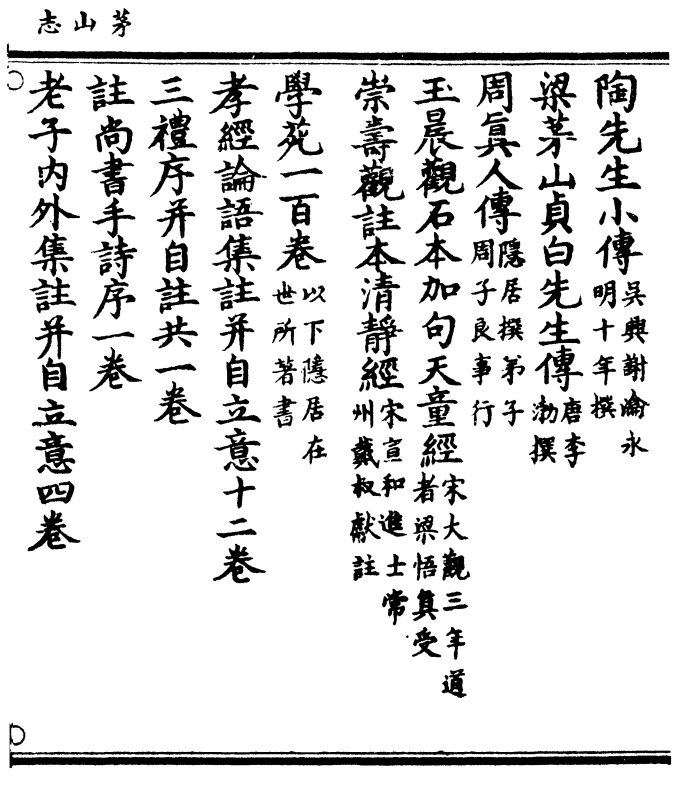 茅山志
陶先生小傳吳興謝瀹永明十年撰
梁茅山貞白先生傳唐李渤撰
周眞人傳隱居撰弟子周子良事行
玉晨觀石本加句天童經宋大觀三年道者梁悟眞受
崇壽觀註本清靜經宋宣和進士常州戴叔獻註
學苑一百卷以下隱居在世所著書
孝經論語集註并自立意十二卷
三禮序并自註共一卷
註尚書手詩序一卷
老子内外集註并自立意四卷